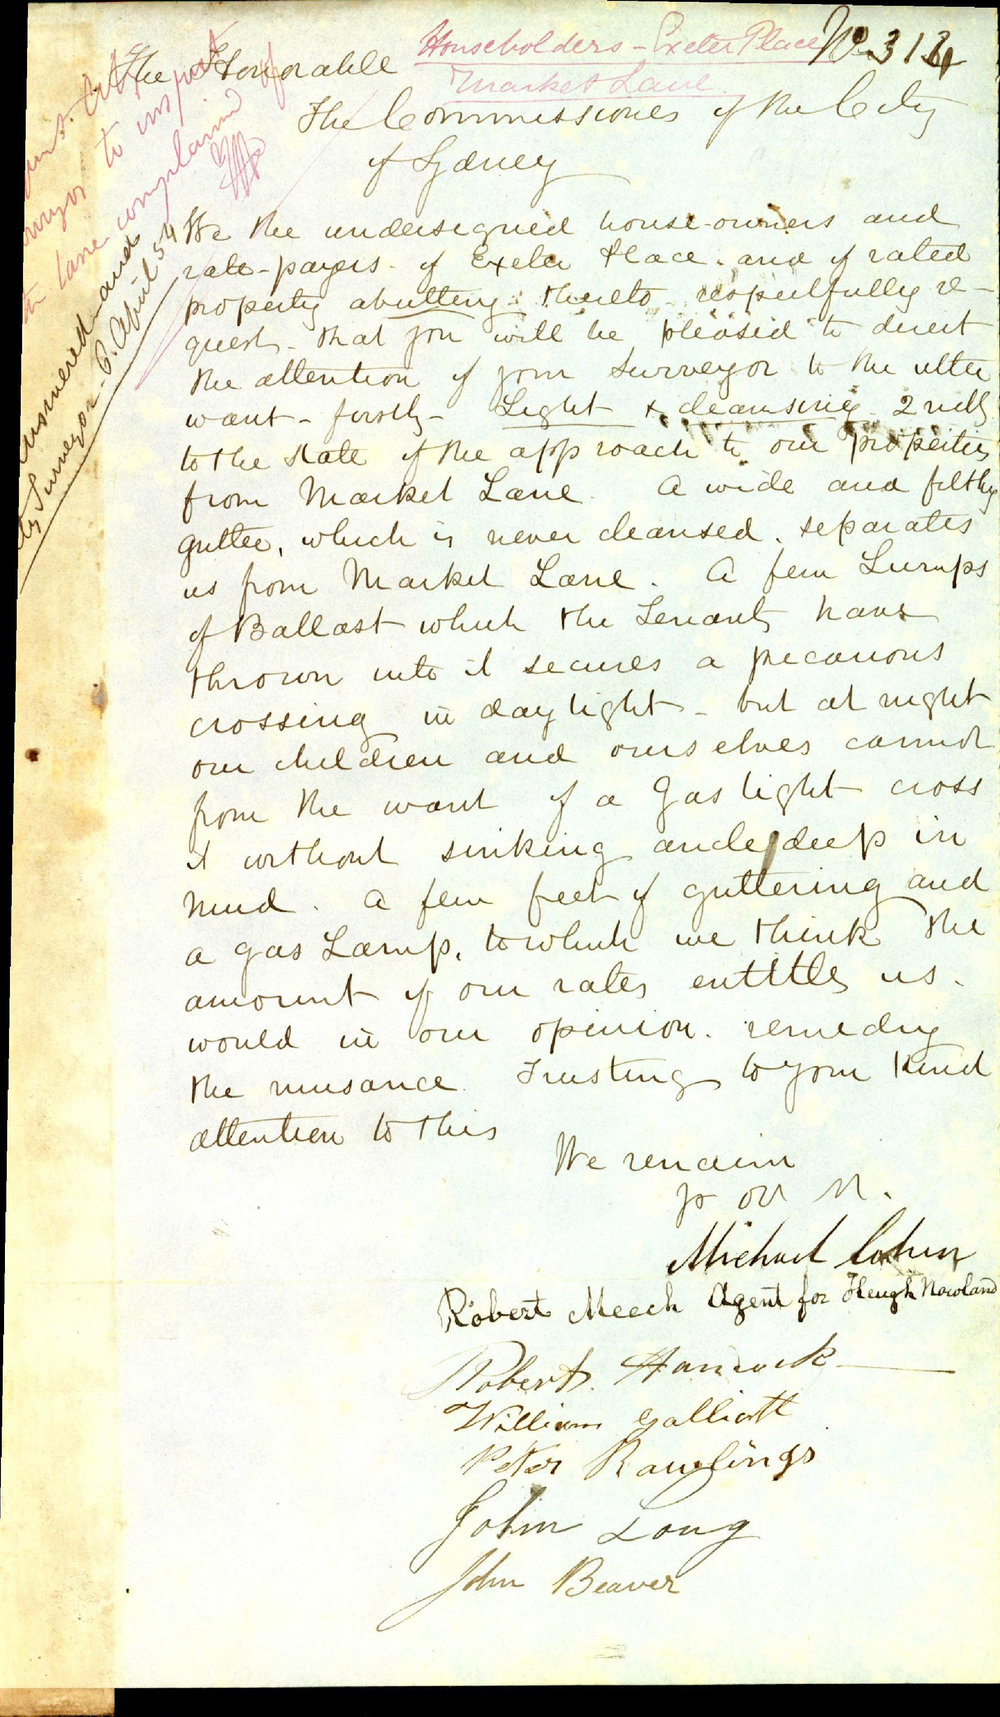 Householders - Exeter Place
Market Lane
No 314
The Honorable
The Commissioners of the City
of Sydney
to inspect
the lane complained of
answered and
by Surveyor - 6. April 54
We the undersigned house-owners and
rate-payers - of Exeter Place - and of rated
property abutting thereto - respectfully re-
quest - that you will be pleased to direct
the attention of your Surveyor to the utter
want - firstly - Light & cleansing 2ndly
to the state of the approach to our properties
from Market Lane. A wide and filthy
gutter, which is never cleansed, separates
us from Market Lane. A few Lumps
of Ballast which the Tenants have
thrown into it secures a precarious
crossing in daylight - but at night
our children and ourselves cannot
from the want of a Gas light cross
it without sinking ancle deep in
mud. A few feet of guttering and
a gas Lamp, to which we think the
amount of our rates entitles us.
would in our opinion. remedy
the nuisance. Trusting to your kind
attention to this
We remain
Michael Cohen
Robert Meech Agent for Heugh Nowland
Robert Hancock
William Galliott
Peter Rawlings
John Long
John Beaver